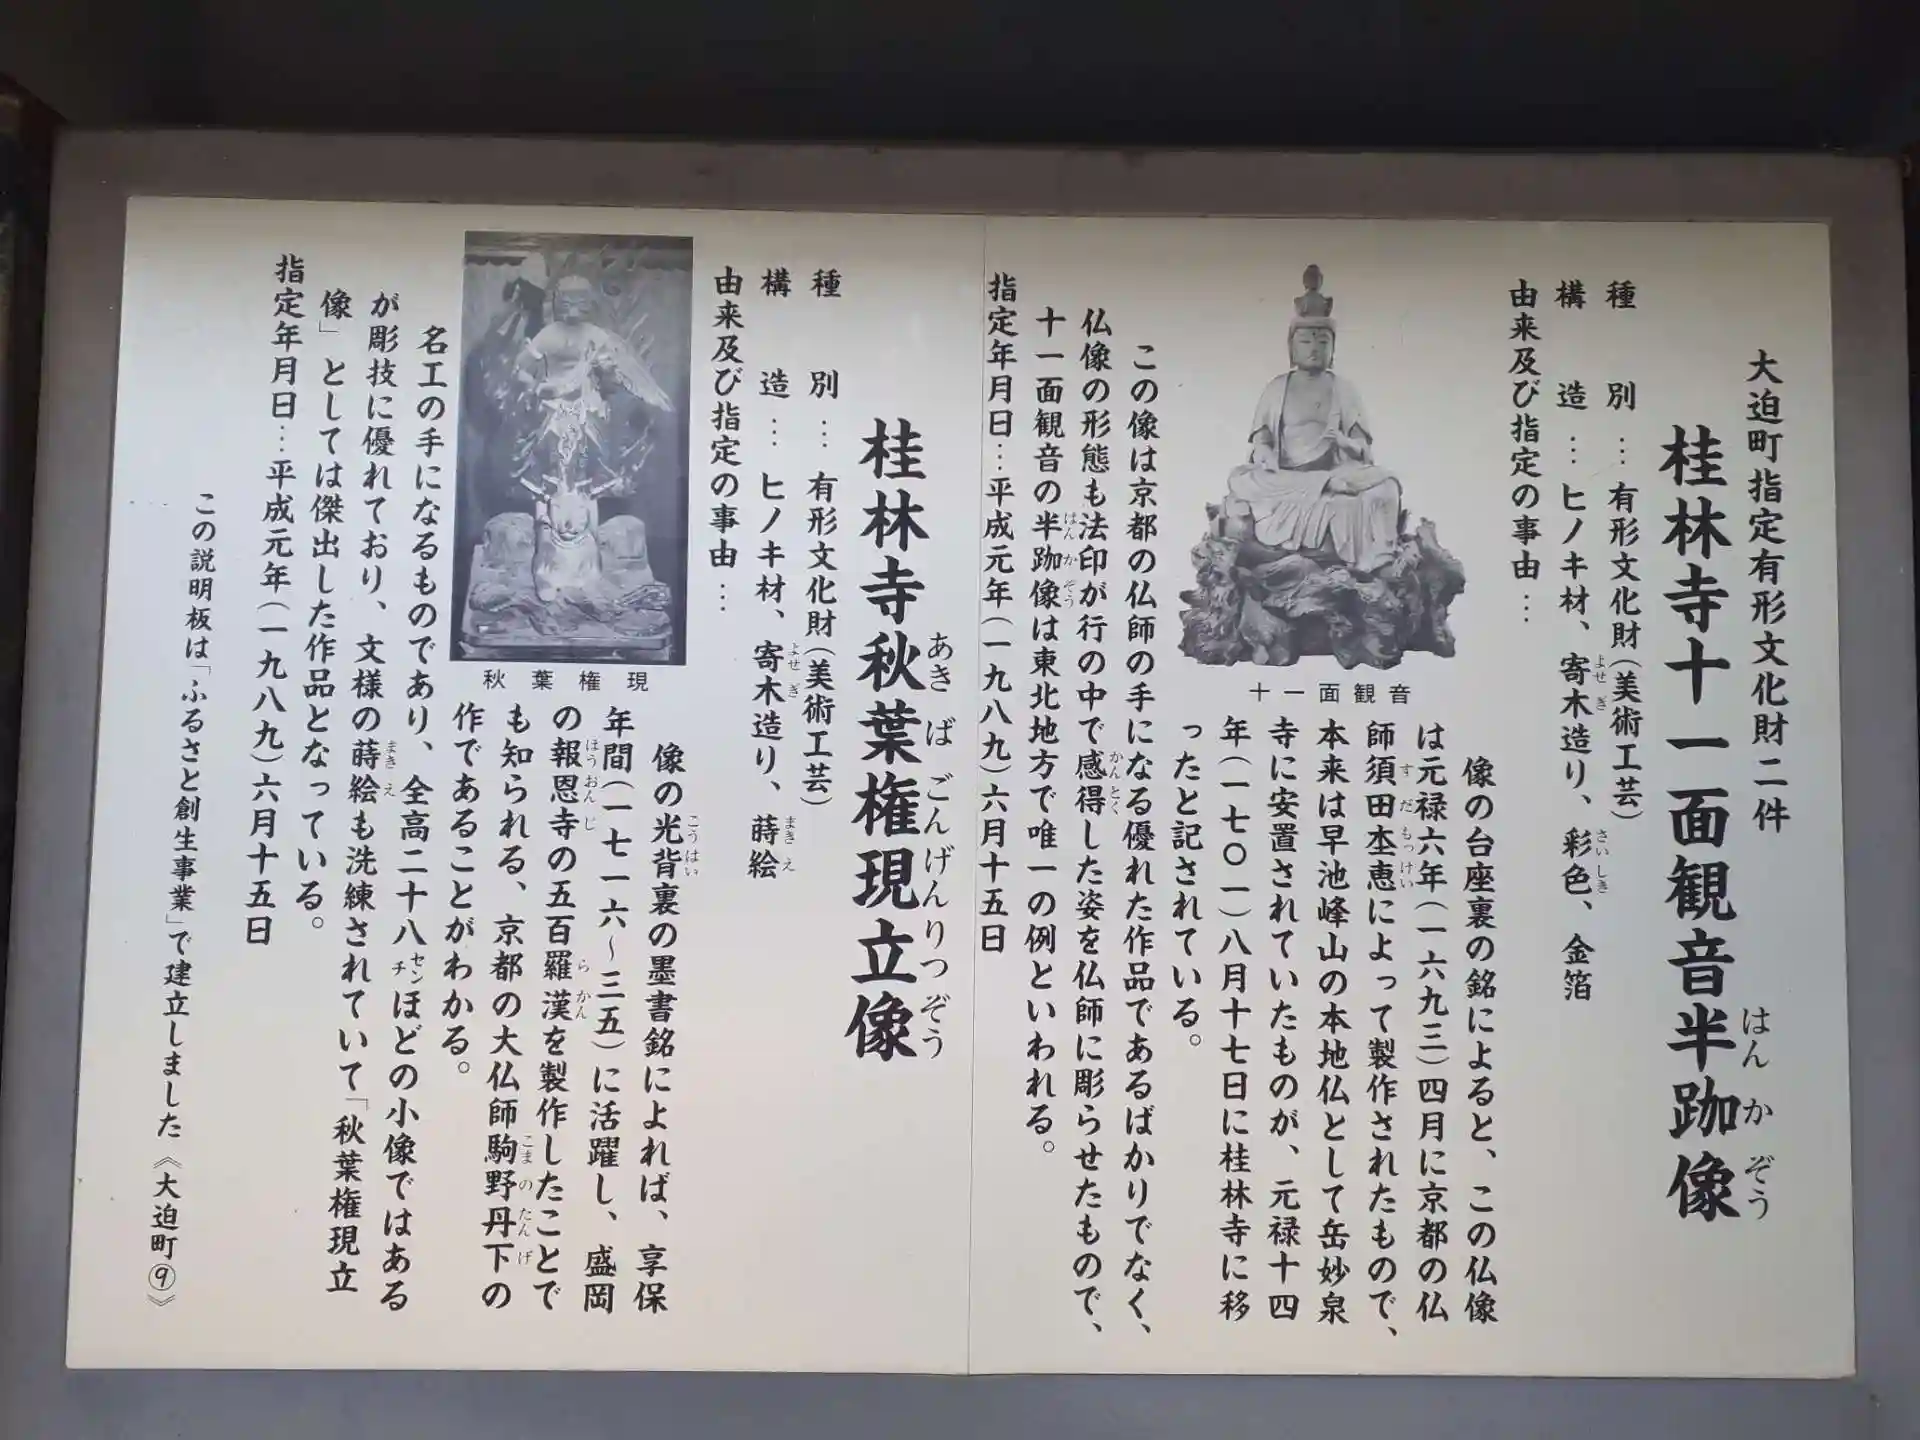 大迫町指定有形文化財二件
桂林寺十一面観音半跏像
はんかぞう
種別…有形文化財(美術工芸)
構造…ヒノキ材、寄木造り、彩色、金箔
よせぎ
さいしき
由来及び指定の事由…
十一面観音
像の台座裏の銘によると、この仏像
は元禄六年(一六九三)四月に京都の仏
師須田杢恵によって製作されたもので、
すだもっけい
本来は早池峰山の本地仏として岳妙泉
寺に安置されていたものが、元禄十四
年(一七〇一)八月十七日に桂林寺に移
ったと記されている。
この像は京都の仏師の手になる優れた作品であるばかりでなく、
仏像の形態も法印が行の中で感得した姿を仏師に彫らせたもので、
かんとく
十一面観音の半跏像は東北地方で唯一の例といわれる。
はんかぞう
指定年月日…平成元年(一九八九)六月十五日
桂林寺秋葉権現立像
あきばごんげんりつぞう
種別…有形文化財(美術工芸)
構造…ヒノキ材、寄木造り、蒔絵
よせぎ
まきえ
由来及び指定の事由…
秋葉権現
像の光背裏の墨書銘によれば、享保
こうはい
年間(一七一六～三五)に活躍し、盛岡
の報恩寺の五百羅漢を製作したことで
ほうおんじ
らかん
も知られる、京都の大仏師駒野丹下の
こまのたんげ
作であることがわかる。
名工の手になるものであり、全高二十八センチほどの小像ではある
が彫技に優れており、文様の蒔絵も洗練されていて「秋葉権現立
まきえ
像」としては傑出した作品となっている。
指定年月日…平成元年(一九八九)六月十五日
この説明板は「ふるさと創生事業」で建立しました《大迫町⑨》